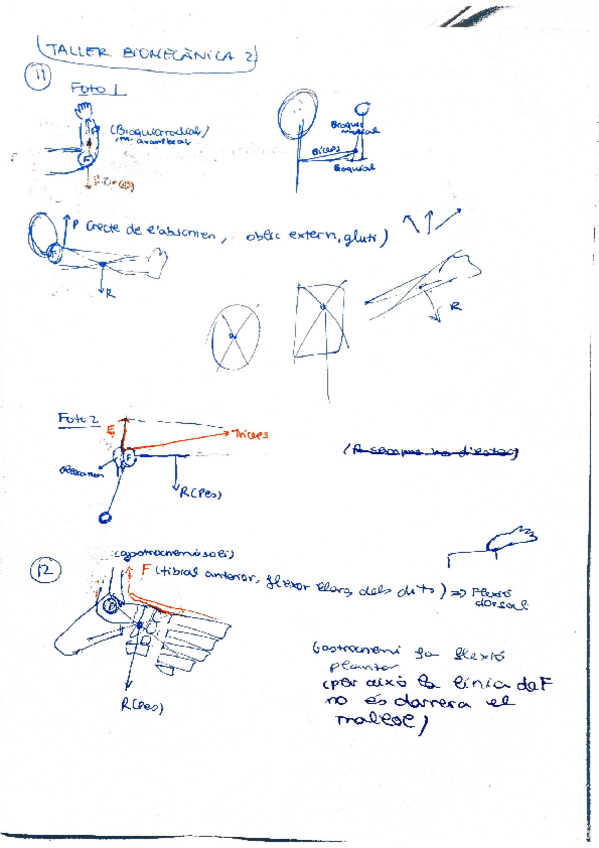 TALLER BIOMECÀNICA 2
11
Foto 1
(Bioquiorradial)
Braquio
Bíceps
Braquial
P (recte de l'abdomen, oblic extern, gluti)
R
R
Foto 2
E
Tríceps
F
R (Pes)
12
(gastrocnemi i soli)
F (tibial anterior, flexor llarg dels dits) => Flexió
dorsal
R (Pes)
Gastrocnemi fa flexió
plantar
(per això la línia de F
no és darrera el
maleol)